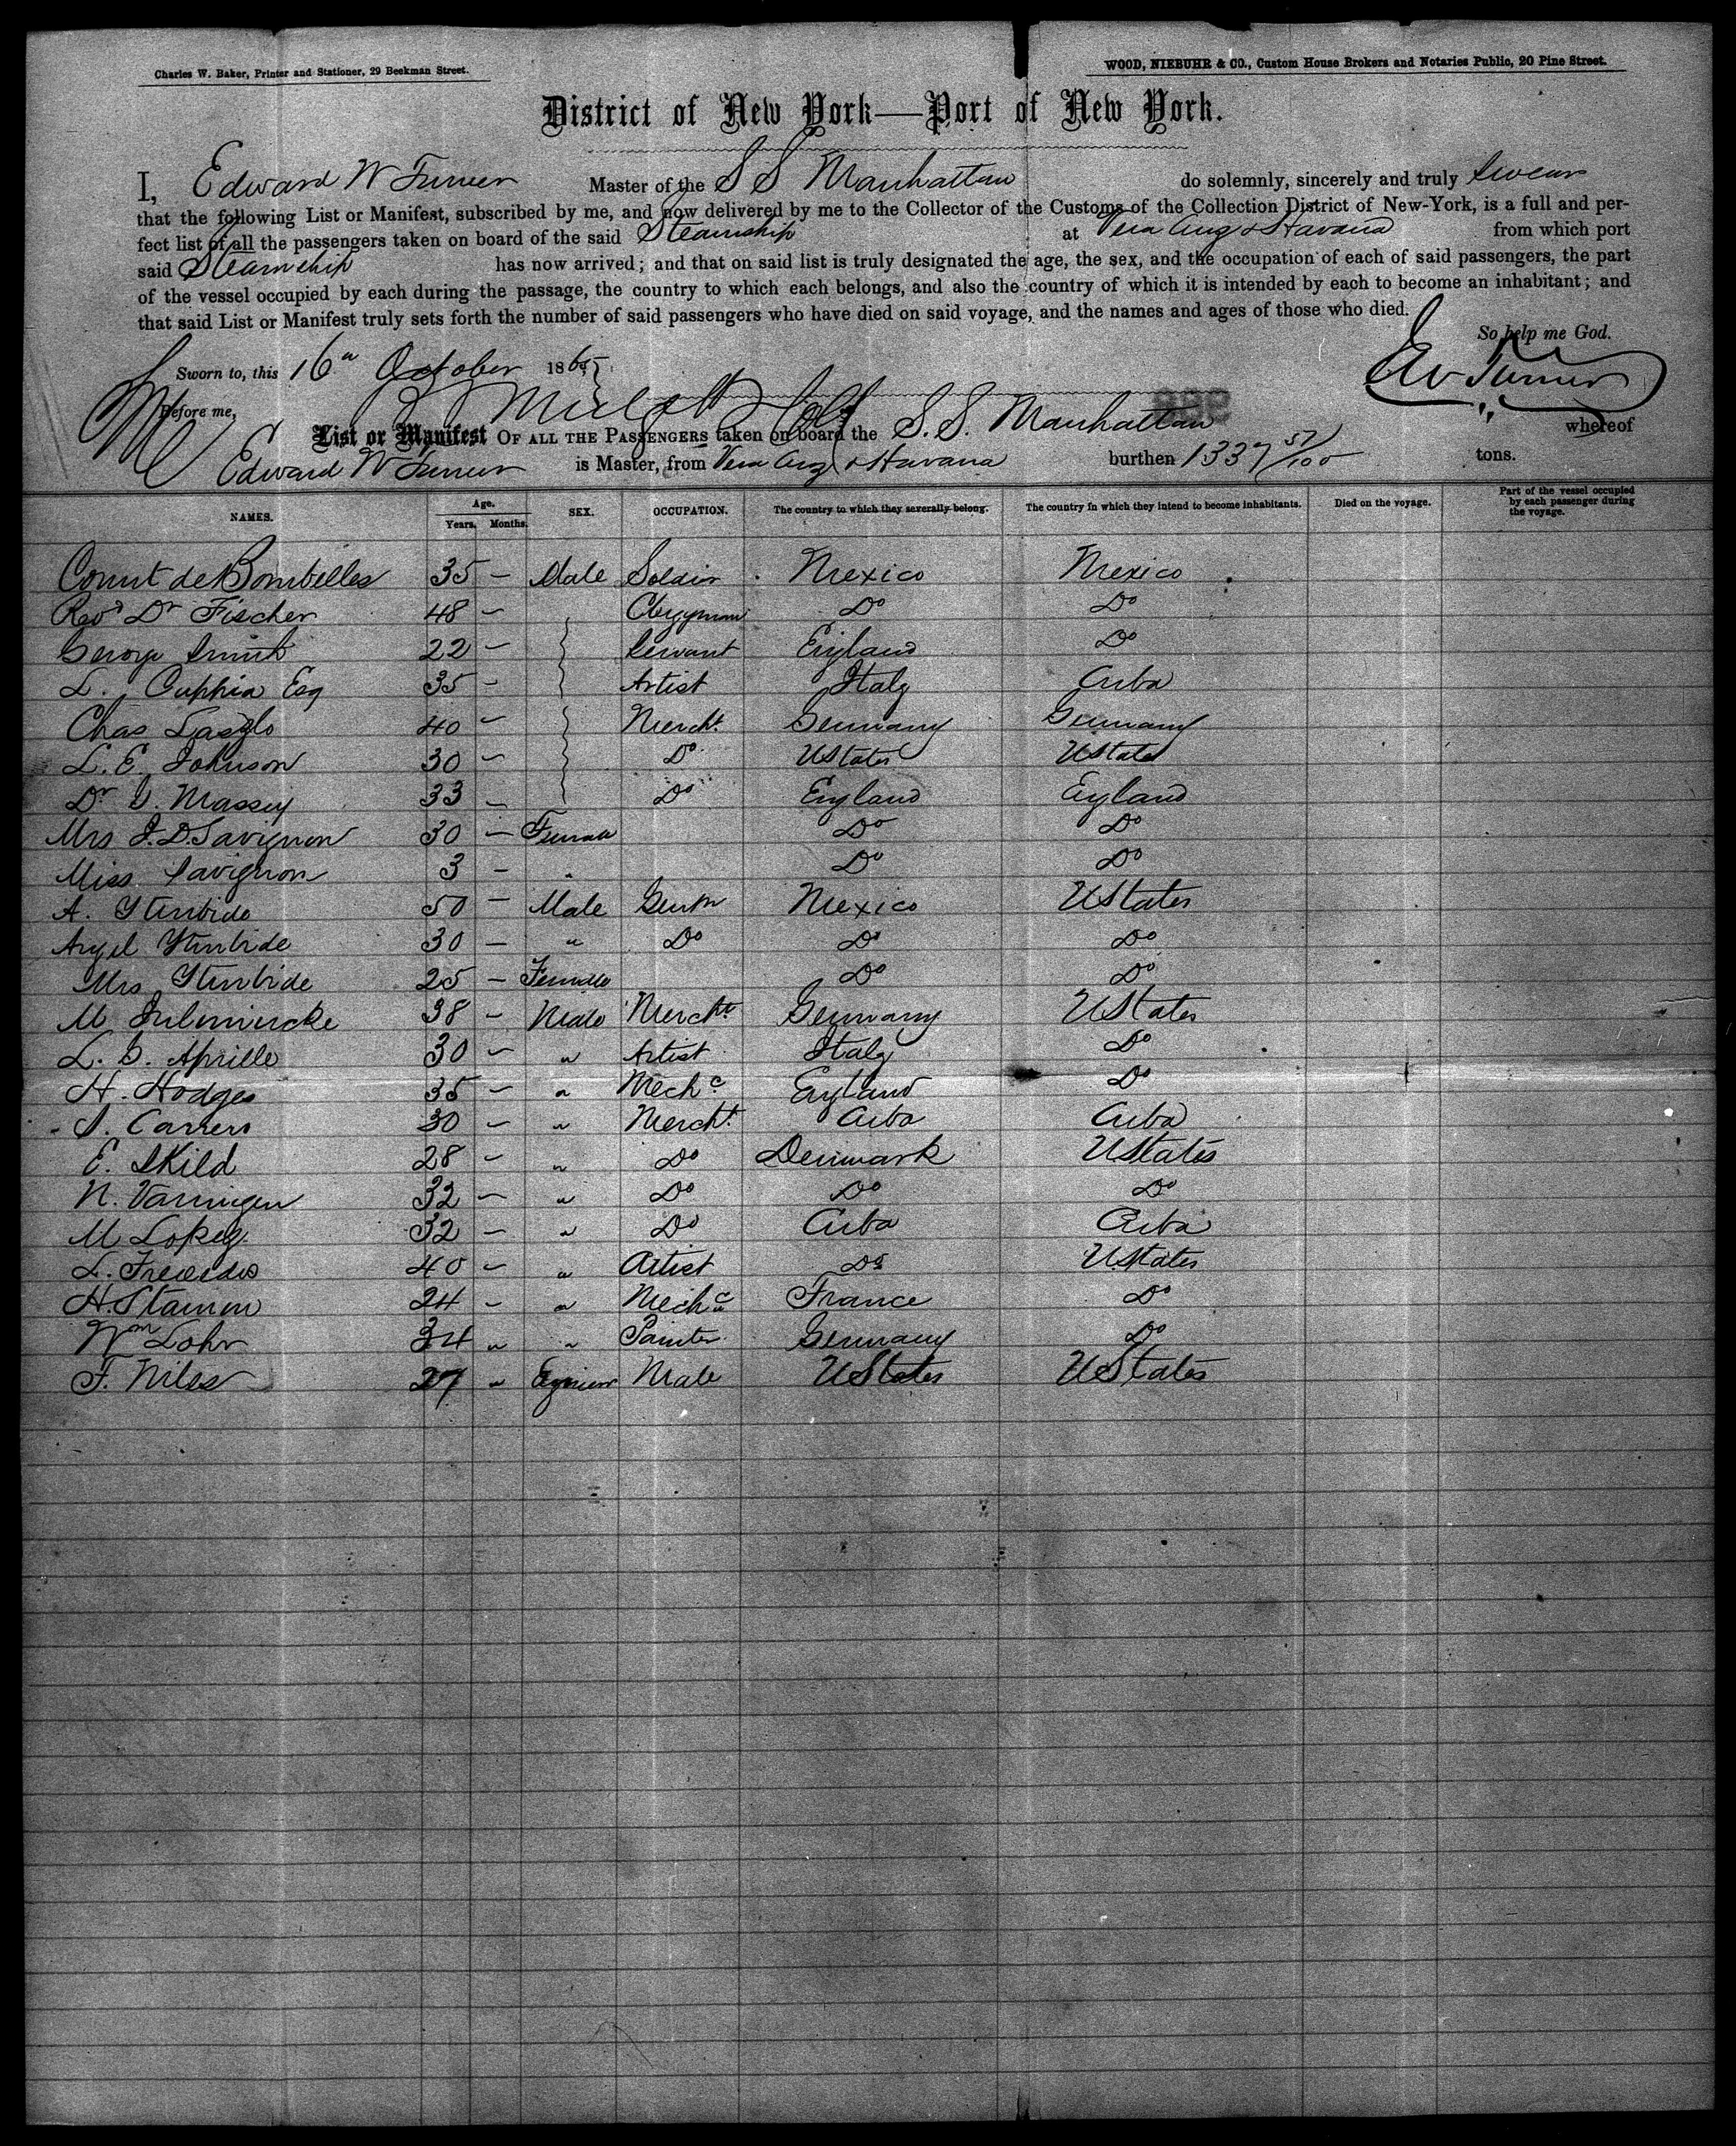 Charles W. Baker, Printer and Stationer, 29 Beekman Street.
WOOD, NIEBUHR & CO., Custom House Brokers and Notaries Public, 20 Pine Street.
District of New York—Port of New York.
I, Edward W Turner Master of the S S Manhattan do solemnly, sincerely and truly swear
that the following List or Manifest, subscribed by me, and now delivered by me to the Collector of the Customs of the Collection District of New-York, is a full and per-
fect list of all the passengers taken on board of the said Steamship at Vera Cruz & Havana from which port
said Steamship has now arrived; and that on said list is truly designated the age, the sex, and the occupation of each of said passengers, the part
of the vessel occupied by each during the passage, the country to which each belongs, and also the country of which it is intended by each to become an inhabitant; and
that said List or Manifest truly sets forth the number of said passengers who have died on said voyage, and the names and ages of those who died.
So help me God.
Sworn to, this 16" October 1865
E W Turner
Before me,
List or Manifest OF ALL THE PASSENGERS taken on board the S. S. Manhattan whereof
Edward W Turner is Master, from Vera Cruz & Havana burthen 1337 57/100 tons.
NAMES. Age. Years. Months. SEX. OCCUPATION. The country to which they severally belong. The country in which they intend to become inhabitants. Died on the voyage. Part of the vessel occupied by each passenger during the voyage.
Count de Bombelles 35 — Male Soldier Mexico Mexico
Revd Dr Fischer 48 — Clergyman Do Do
George Smith 22 — Servant England Do
L. Cuppia Esq 35 — Artist Italy Cuba
Chas Laszlo 40 — Mercht. Germany Germany
L. E. Johnson 30 — Do UStates UStates
Dr G. Massey 33 — Do England England
Mrs J. D. Savignon 30 — Female Do Do
Miss Savignon 3 — " Do Do
A. Yturbide 50 — Male Gentn Mexico UStates
Angel Yturbide 30 — " Do Do Do
Mrs Yturbide 25 — Female Do Do
M 38 — Male Mercht. Germany UStates
L. G. Aprille 30 — " Artist Italy Do
H. Hodges 35 — " Mechc England Do
Carrero 30 — " Mercht. Cuba Cuba
E. Skild 28 — " Do Denmark UStates
N. Varningen 32 — " Do Do Do
M Lopez 32 — " Do Cuba Cuba
L. 40 — " Artist Do UStates
H. Stamm 24 — " Mechc France Do
Wm Lohr 34 " " Painter Germany Do
F. Niles 27 " Engineer Male UStates UStates